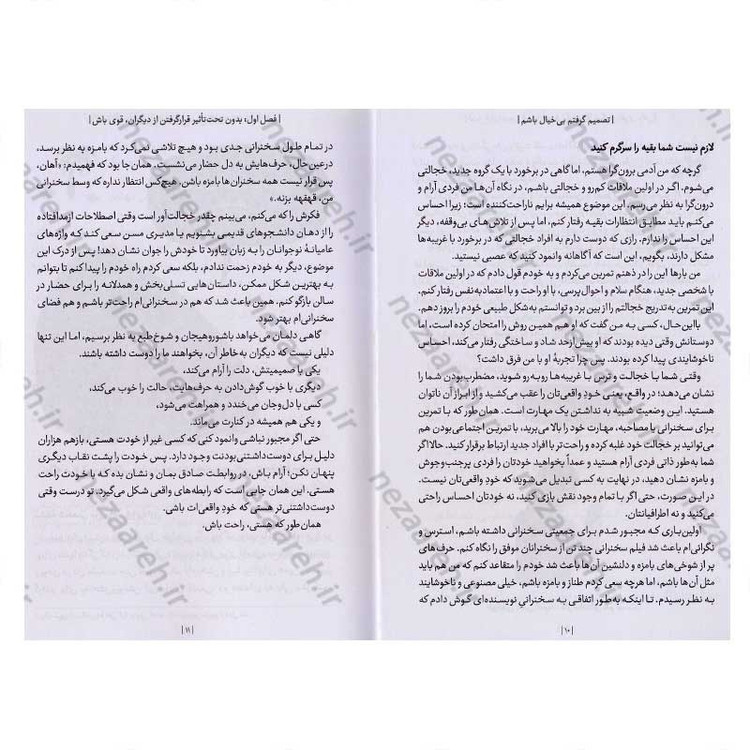 | تصمیم گرفتم بی‌خیال باشم |
لازم نیست شما بقیه را سرگرم کنید
گرچه که من آدمی برون‌گرا هستم، اما گاهی در برخورد با یک گروه جدید، خجالتی
می‌شوم. اگر در اولین ملاقات کم‌رو و خجالتی باشم، در نگاه آن‌ها من فردی آرام و
درون‌گرا به نظر می‌رسم. این موضوع همیشه برایم ناراحت‌کننده است؛ زیرا احساس
می‌کنم باید مطابق انتظارات بقیه رفتار کنم، اما پس از تلاش‌های بی‌وقفه، دیگر
این احساس را ندارم. رازی که دوست دارم به افراد خجالتی که در برخورد با غریبه‌ها
مشکل دارند، بگویم، این است که آگاهانه وانمود کنید که عصبی نیستید.
من بارها این را در ذهنم تمرین می‌کردم و به خودم قول دادم که در اولین ملاقات
با شخصی جدید، هنگام سلام و احوال‌پرسی، با او راحت و با اعتمادبه‌نفس رفتار کنم.
این تمرین به‌تدریج خجالتم را از بین برد و توانستم به‌شکل طبیعی خودم را بروز دهم.
بااین‌حال، کسی به من گفت که او هم همین روش را امتحان کرده است، اما
دوستانش وقتی دیده بودند که او بیش‌ازحد شاد و ساختگی رفتار می‌کند، احساس
ناخوشایندی پیدا کرده بودند. پس چرا تجربهٔ او با من فرق داشت؟
وقتی شما با خجالت و ترس با غریبه‌ها روبه‌رو شوید، مضطرب‌بودن شما را
نشان می‌دهد؛ در واقع، یعنی خود واقعی‌تان را عقب می‌کشید و از ابراز آن ناتوان
هستید. این وضعیت شبیه به نداشتن یک مهارت است. همان‌طور که با تمرین
برای سخنرانی یا مصاحبه، مهارت خود را بالا می‌برید، با تمرین اجتماعی‌بودن هم
می‌توانید بر خجالت خود غلبه کرده و راحت‌تر با افراد جدید ارتباط برقرار کنید. حالا اگر
شما به‌طور ذاتی فردی آرام هستید و عمداً بخواهید خودتان را فردی پرجنب‌وجوش
و بامزه نشان دهید، در نهایت به کسی تبدیل می‌شوید که خودِ واقعی‌تان نیست.
در این صورت، حتی اگر با تمام وجود نقش بازی کنید، نه خودتان احساس راحتی
می‌کنید و نه اطرافیانتان.
اولین‌باری که مجبور شدم برای جمعیتی سخنرانی داشته باشم، استرس و
نگرانی‌ام باعث شد فیلم سخنرانی چند تن از سخنرانان موفق را نگاه کنم. حرف‌های
پر از شوخی‌های بامزه و دلنشین آن‌ها باعث شد خودم را متقاعد کنم که من هم باید
مثل آن‌ها باشم، اما هرچه سعی کردم طناز و بامزه باشم، خیلی مصنوعی و ناخوشایند
به نظر رسیدم. تا اینکه به‌طور اتفاقی به سخنرانیِ نویسنده‌ای گوش دادم که
| ۱۰ |
| فصل اول: بدون تحت‌تأثیر قرارگرفتن از دیگران، قوی باش |
در تمام طول سخنرانی جدی بود و هیچ تلاشی نمی‌کرد که بامزه به نظر برسد،
درعین‌حال، حرف‌هایش به دل حضار می‌نشست. همان جا بود که فهمیدم: «آهان،
پس قرار نیست همه سخنران‌ها بامزه باشن. هیچ‌کس انتظار نداره که وسط سخنرانی
من، قهقهه بزنه.»
فکرش را که می‌کنم، می‌بینم چقدر خجالت‌آور است وقتی اصطلاحات ازمدافتاده
را از دهان دانشجوهای قدیمی بشنویم یا مدیری مسن سعی کند که واژه‌های
عامیانهٔ نوجوانان را به زبان بیاورد تا خودش را جوان نشان دهد! پس از درک این
موضوع، دیگر به خودم زحمت ندادم، بلکه سعی کردم راه خودم را پیدا کنم تا بتوانم
به بهترین شکل ممکن، داستان‌هایی تسلی‌بخش و همدلانه را برای حضار در
سالن بازگو کنم. همین باعث شد که هم در سخنرانی‌ام راحت‌تر باشم و هم فضای
سخنرانی‌ام بهتر شود.
گاهی دلمان می‌خواهد باشوروهیجان و شوخ‌طبع به نظر برسیم، اما این تنها
دلیلی نیست که دیگران به خاطر آن، بخواهند ما را دوست داشته باشند.
یکی با صمیمیتش، دلت را آرام می‌کند،
دیگری با خوب گوش‌دادن به حرف‌هایت، حالت را خوب می‌کند،
کسی با دل‌وجان می‌خندد و همراهت می‌شود،
و یکی هم همیشه در کنارت می‌ماند.
حتی اگر مجبور نباشی وانمود کنی که کسی غیر از خودت هستی، بازهم هزاران
دلیل برای دوست‌داشتنی‌بودنت وجود دارد. پس خودت را پشت نقاب دیگری
پنهان نکن؛ آرام باش، در روابطت صادق بمان و نشان بده که با خودت راحت
هستی. این همان جایی است که رابطه‌های واقعی شکل می‌گیرد. تو درست وقتی
دوست‌داشتنی‌تر هستی که خودِ واقعی‌ات باشی.
همان طور که هستی، راحت باش.
| ۱۱ |
nezaareh.ir
nezaareh.ir
nezaareh.ir
nezaareh.ir
nezaareh.ir
nezaareh.ir